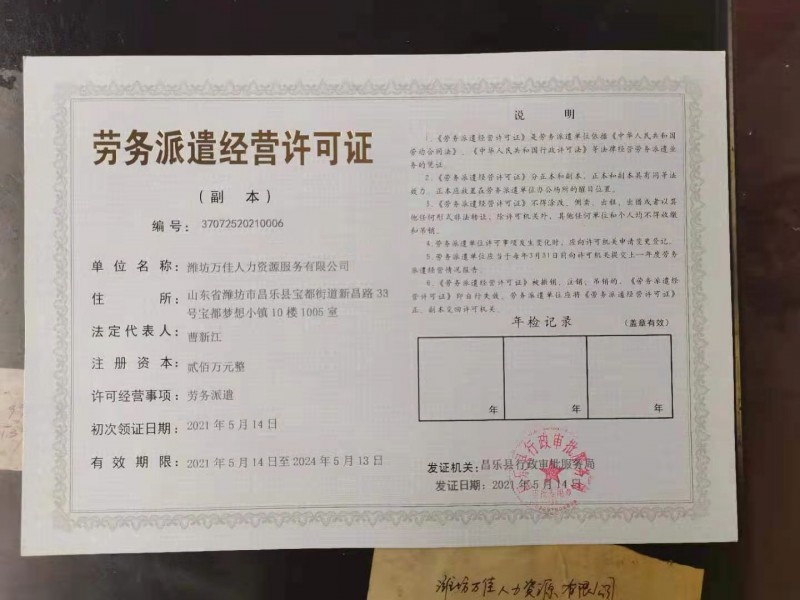 劳务派遣经营许可证
（副 本）
编号：37072520210006
单位名称：潍坊万佳人力资源服务有限公司
住 所：山东省潍坊市昌乐县宝都街道新昌路33
号宝都梦想小镇10楼1005室
法定代表人：曹新江
注册资本：贰佰万元整
许可经营事项：劳务派遣
初次领证日期：2021年5月14日
有效期限：2021年5月14日至2024年5月13日
说 明
1.《劳务派遣经营许可证》是劳务派遣单位依据《中华人民共和国
劳动合同法》、《中华人民共和国行政许可法》等法律经营劳务派遣业
务的凭证。
2.《劳务派遣经营许可证》分正本和副本，正本和副本具有同等法
律效力。正本应放置在劳务派遣单位办公场所的醒目位置。
3.《劳务派遣经营许可证》不得涂改、倒卖、出租、出借或者以其
他任何形式非法转让。除许可机关外，其他任何单位和个人均不得收缴
和吊销。
4.劳务派遣单位许可事项发生变化时，应向许可机关申请变更登记。
5.劳务派遣单位应当于每年3月31日前向许可机关提交上一年度劳务
派遣经营情况报告。
6.《劳务派遣经营许可证》被撤销、注销、吊销的，《劳务派遣经
营许可证》即自行失效，劳务派遣单位应将《劳务派遣经营许可证》
正、副本交回许可机关。
年检记录 （盖章有效）
年 年 年
发证机关：昌乐县行政审批服务局
发证日期：2021年5月14日
潍坊万佳人力资源有限公司